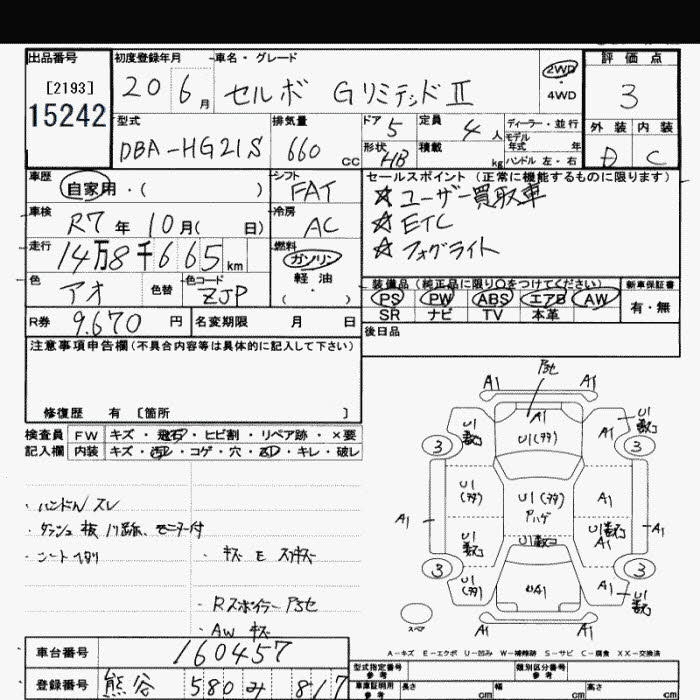 出品番号 初度登録年月 車名・グレード 評価点
[2193] 20 6月 セルボ Gリミテッド II 2WD ・ 4WD 3
15242
型式 排気量 ドア 5 定員 4人 ディーラー・並行 外装 内装
DBA-HG21S 660cc 形状 HB 積載 kg モデル年式 年式 ハンドル 左・右 D C
車歴 自家用・( ) シフト FAT セールスポイント (正常に機能するものに限ります)
車検 R7年 10月( 日) 冷房 AC ☆ユーザー買取車
☆ETC
走行 14万8千665km 燃料 ガソリン 軽油 ( ・ ) ☆フォグライト
色 アオ 色替 色コード ZJP 装備品 (純正品に限り○をつけてください) 新車保証書
PS PW ABS エアB AW 有・無
SR ナビ TV 本革
R券 9.670円 名変期限 月 日 後日品
注意事項申告欄(不具合内容等は具体的に記入して下さい)
修復歴 有 [箇所 ]
検査員 FW キズ・飛石・ヒビ割・リペア跡・×要
記入欄 内装 キズ・汚レ・コゲ・穴・・キレ・破レ
・ハンドルスレ
・ダッシュ
・シート
・キズ E スリキズ
・Rスポイラー Pセ
・AW キズ
Pセ
A1 A1
A1 U1 数コ U1(タタ) A1 U1 数コ
3 3
U1(タタ) U1(タタ) A1
A1 アハゲ U1数コ A1 A1
U1 数コ U1数コ
3 3
U1(タタ) UA1 A1 U1 数コ
スペア A1 A1
A-キズ E-エクボ U-凹み W-補修跡 S-サビ C-腐食 XX-交換済
車台番号 160457
登録番号 熊谷 580 み 817
型式指定番号 参考 類別区分番号 参考
車庫証明用 参考 長さ cm 幅 cm 高さ cm